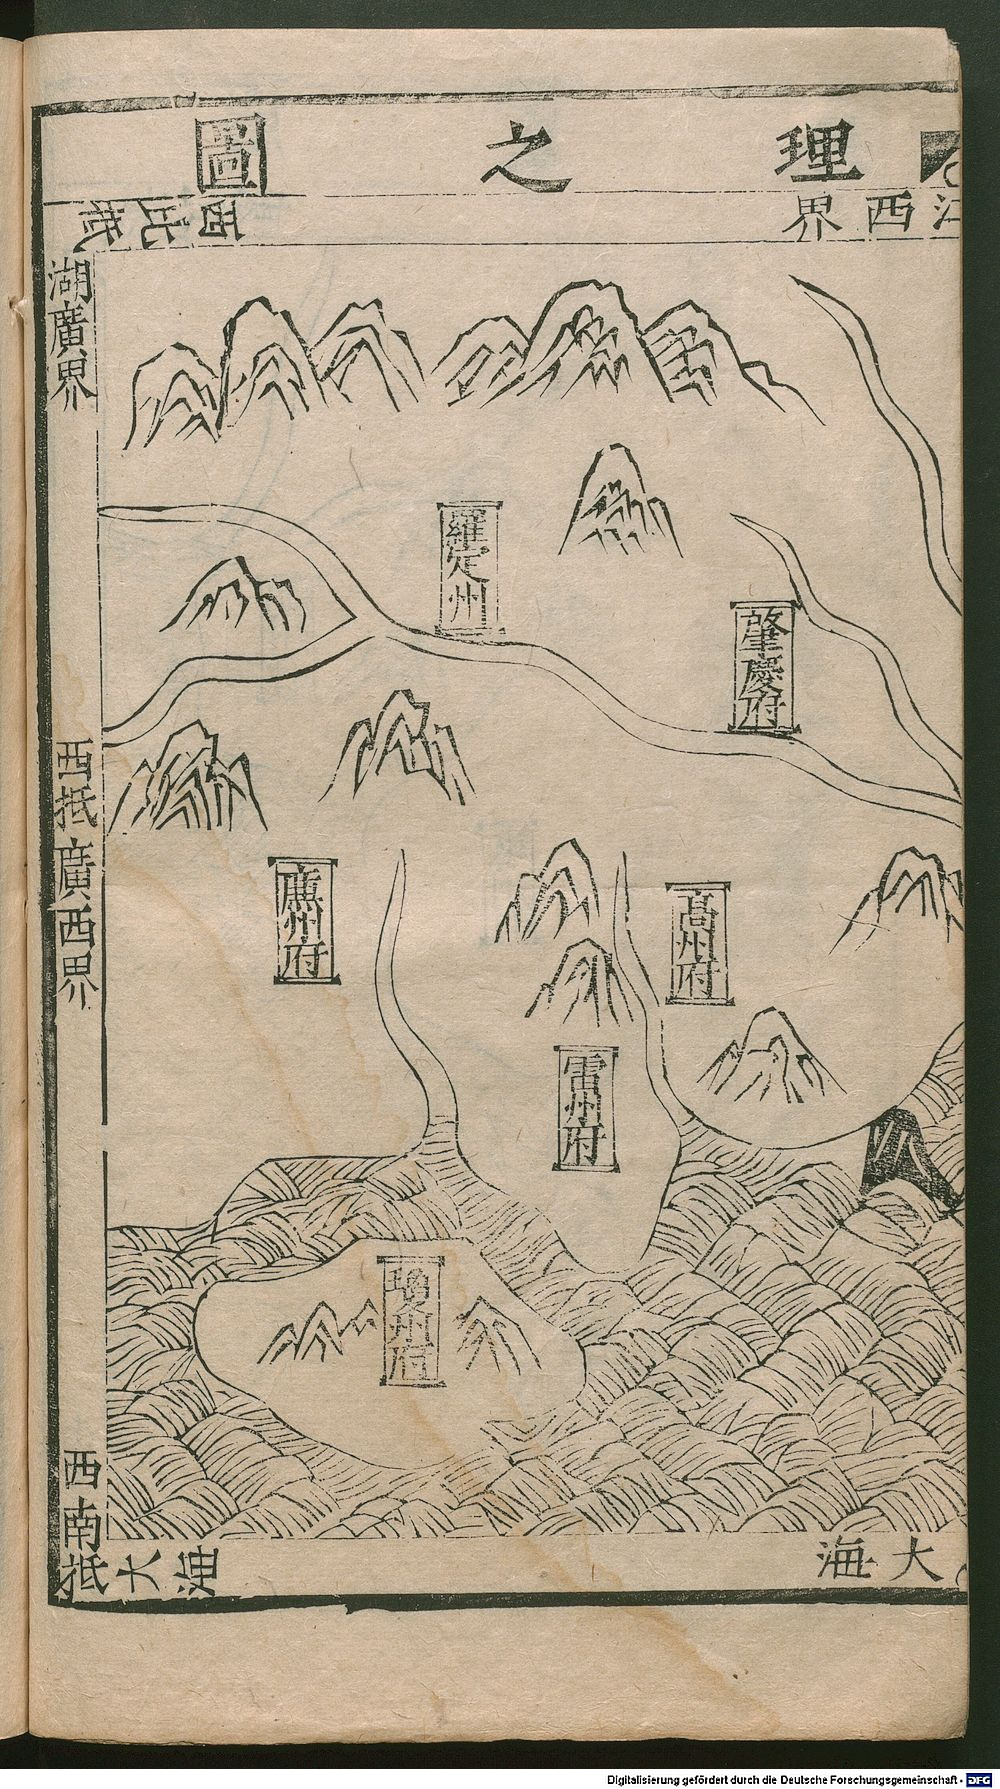 理之圖
江西界
西北抵
湖廣界
西抵廣西界
西南抵大海
大海
羅定州
肇慶府
廉州府
高州府
雷州府
瓊州府
Digitalisierung gefördert durch die Deutsche Forschungsgemeinschaft - DFG